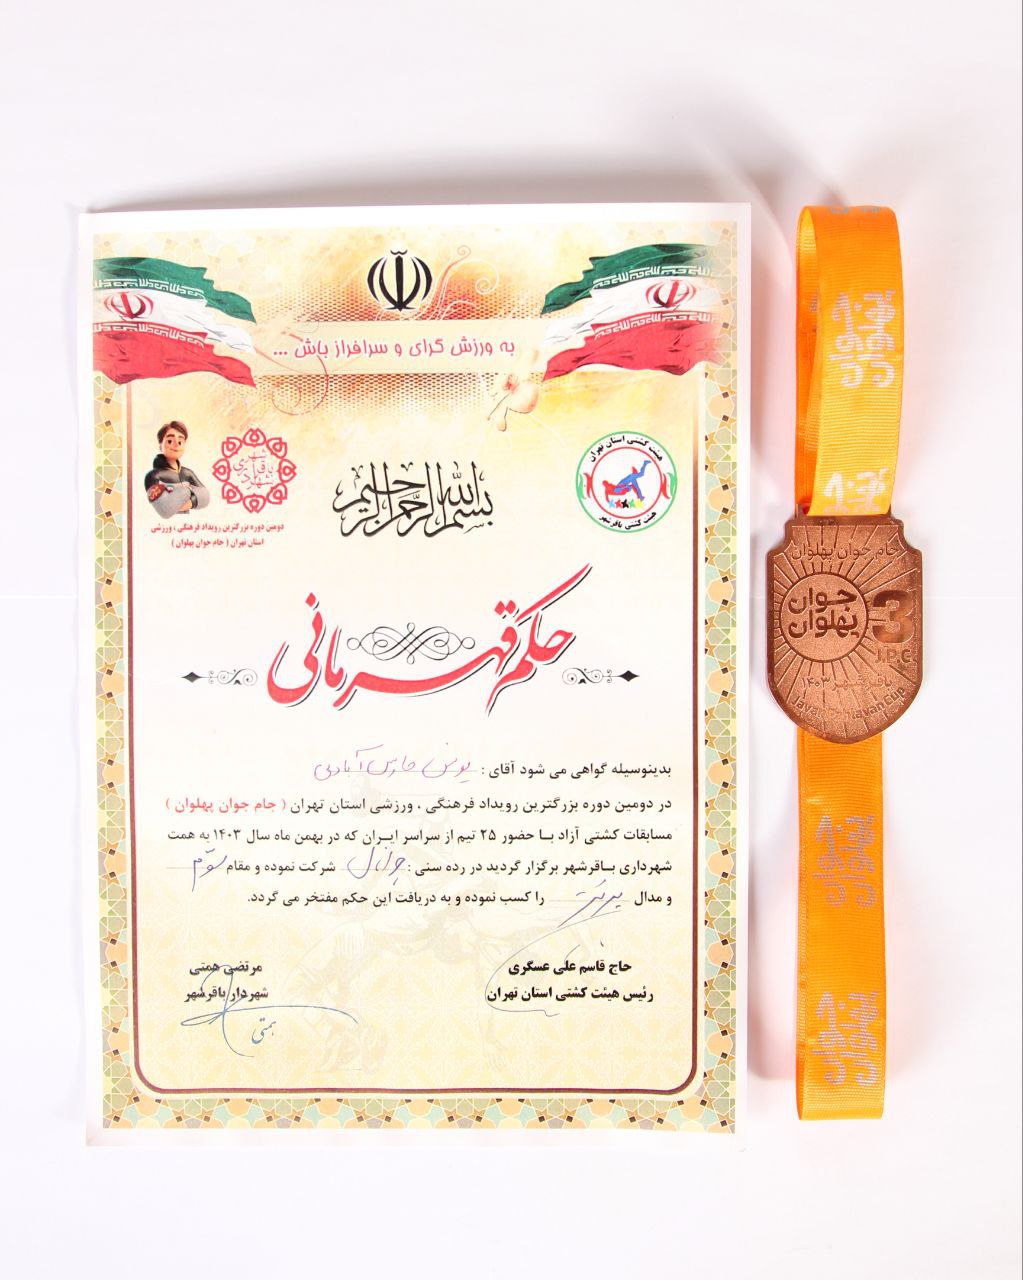 به ورزش گرای و سرافراز باش ...
بسم الله الرحمن الرحیم
هیئت کشتی استان تهران
هیئت کشتی باقرشهر
دومین دوره بزرگترین رویداد فرهنگی ، ورزشی
استان تهران ( جام جوان پهلوان )
حکم قهرمانی
بدینوسیله گواهی می شود آقای : یونس حارس آبادی
در دومین دوره بزرگترین رویداد فرهنگی ، ورزشی استان تهران ( جام جوان پهلوان )
مسابقات کشتی آزاد با حضور ۲۵ تیم از سراسر ایران که در بهمن ماه سال ۱۴۰۳ به همت
شهرداری باقرشهر برگزار گردید در رده سنی : شرکت نموده و مقام سوم
و مدال برنز را کسب نموده و به دریافت این حکم مفتخر می گردد.
حاج قاسم علی عسگری
رئیس هیئت کشتی استان تهران
مرتضی همتی
شهردار باقرشهر
همتی
جام جوان پهلوان
جوان
پهلوان
3
J.P.C
باقرشهر ۱۴۰۳
Javan Pahlavan Cup